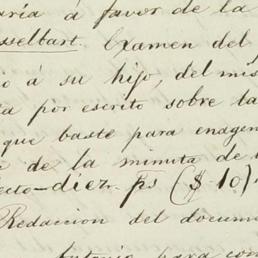 aría á favor de la
sselbart. Examen del
ió á su hijo, del mis
ia por escrito sobre la
que baste para enagen
e de la minuta de
ecto—diez. ps ($ 10)
Redaccion del docume
Antonio para con